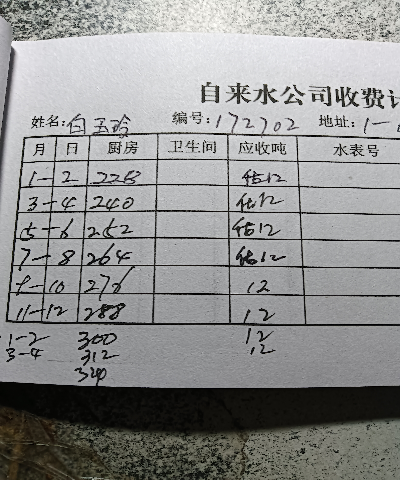 自来水公司收费
姓名:白玉玲 编号:172702 地址:1-
月 日 厨房 卫生间 应收吨 水表号
1-2 228 估12
3-4 240 估12
5-6 252 估12
7-8 264 估12
9-10 276 12
11-12 288 12
1-2 300 12
3-4 312 12
324